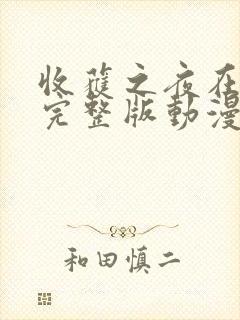 收穫之夜在
完整版動漫
和田慎二